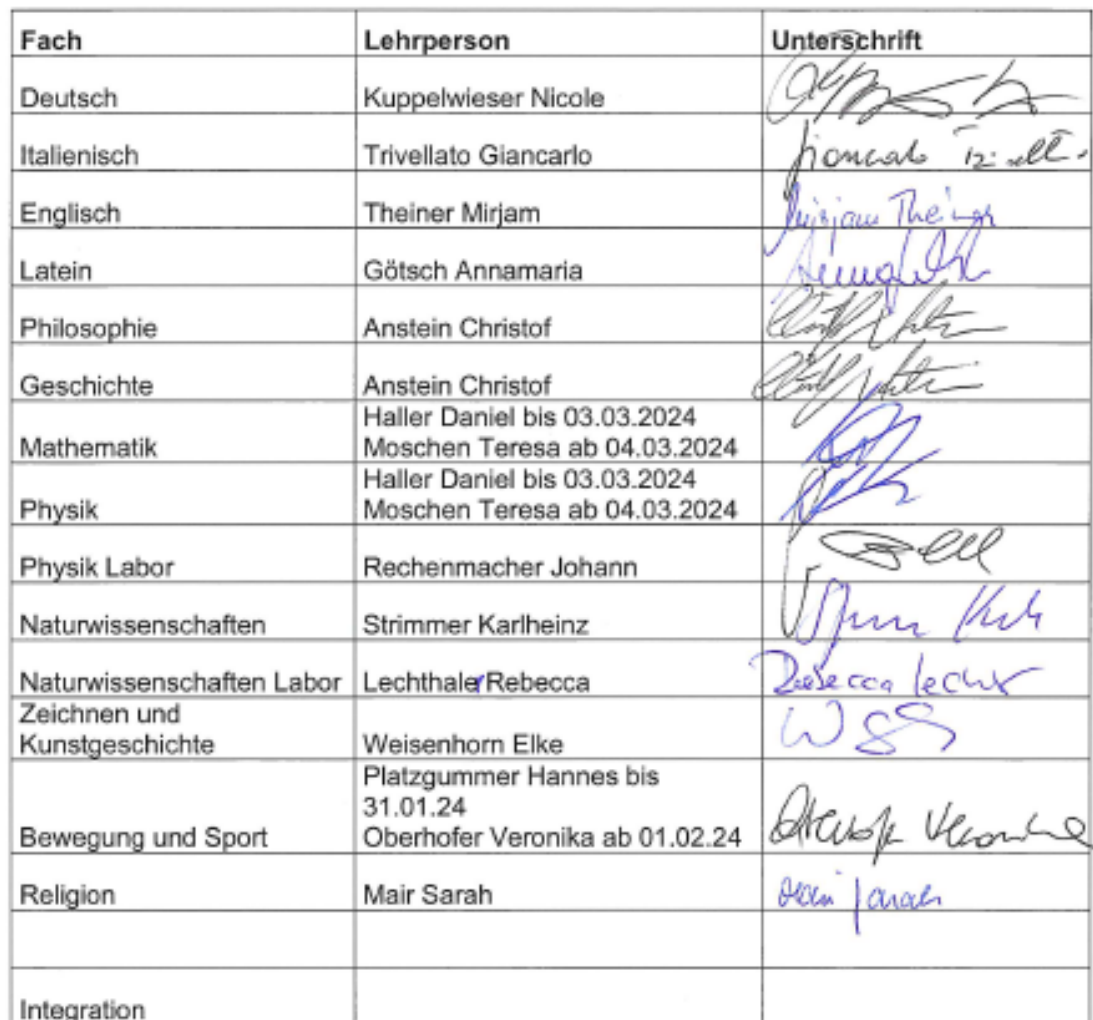 Fach Lehrperson Unterschrift
Deutsch Kuppelwieser Nicole
Italienisch Trivellato Giancarlo
Englisch Theiner Mirjam Mirjam Theiner
Latein Götsch Annamaria
Philosophie Anstein Christof
Geschichte Anstein Christof
Haller Daniel bis 03.03.2024
Mathematik Moschen Teresa ab 04.03.2024
Haller Daniel bis 03.03.2024
Physik Moschen Teresa ab 04.03.2024
Physik Labor Rechenmacher Johann
Naturwissenschaften Strimmer Karlheinz
Naturwissenschaften Labor Lechthaler Rebecca Rebecca
Zeichnen und
Kunstgeschichte Weisenhorn Elke
Platzgummer Hannes bis
31.01.24
Bewegung und Sport Oberhofer Veronika ab 01.02.24
Religion Mair Sarah Mair Sarah
Integration